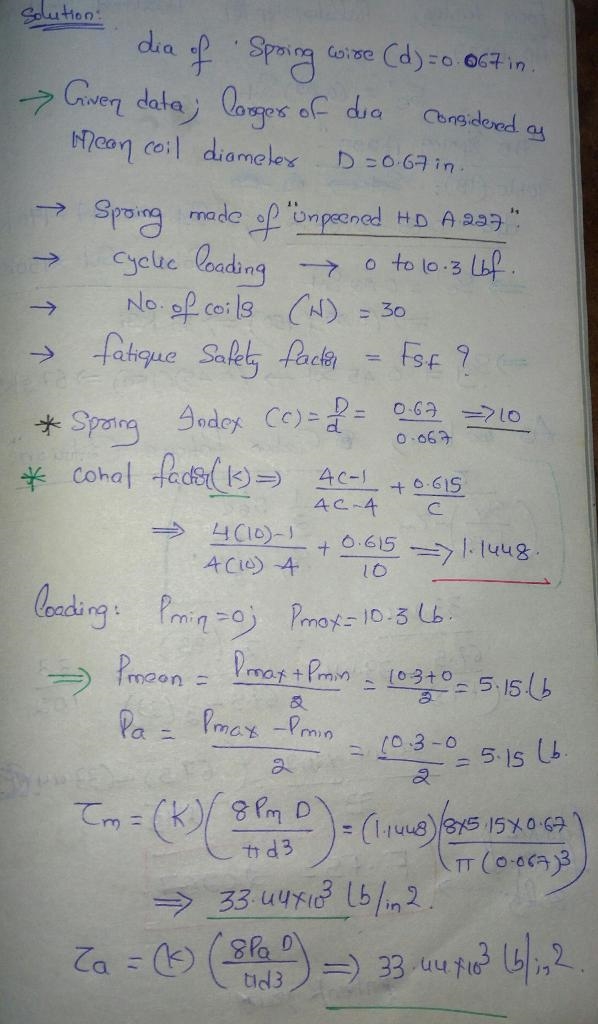 Solution:
dia of Spring wire (d) = 0.067 in.
→ Given data; larger of dia considered as
Mean coil diameter D = 0.67 in.
→ Spring made of "Unpeened HD A 227".
→ cyclic loading → 0 to 10.3 lbf.
→ No. of coils (N) = 30
→ fatique Safety factor = Fsf ?
* Spring Index (C) = D/d = 0.67/0.067 => 10
* cohal factor (k) => 4C-1/4C-4 + 0.615/C
=> 4(10)-1/4(10)-4 + 0.615/10 => 1.1448.
loading: Pmin = 0; Pmax = 10.3 lb.
=> Pmean = Pmax + Pmin/2 = 10.3+0/2 = 5.15 lb
Pa = Pmax - Pmin/2 = 10.3-0/2 = 5.15 lb.
τm = (K)(8 Pm D/πd3) = (1.1448)(8x5.15x0.67/π(0.067)3)
=> 33.44x10³ lb/in2.
τa = (K)(8Pa D/πd3) => 33.44x10³ lb/in2.